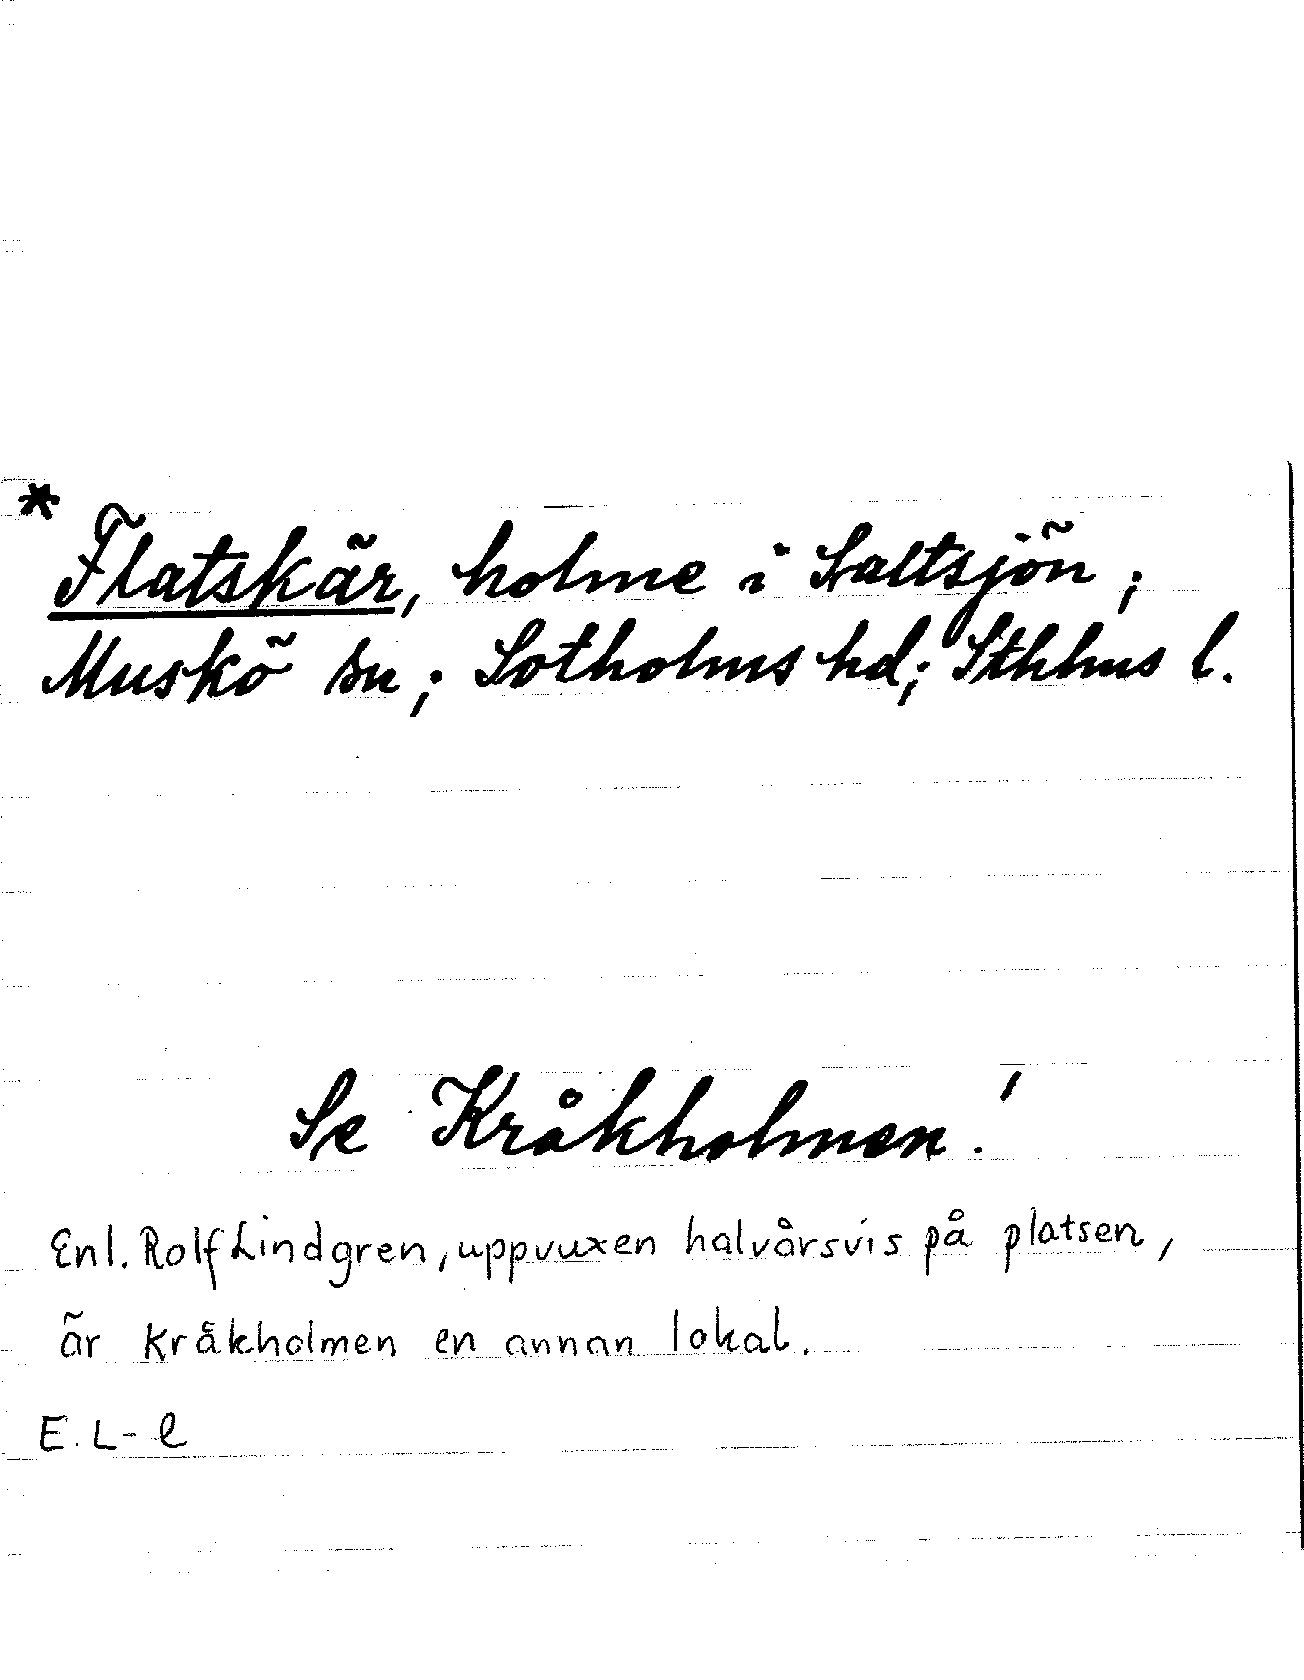 *
Flatskär, holme i Saltsjön;
Muskö sn; Sotholms hd; Sthlms l.
Se Kråkholmen!
Enl. Rolf Lindgren, uppvuxen halvårsvis på platsen,
är Kråkholmen en annan lokal.
E. L-l